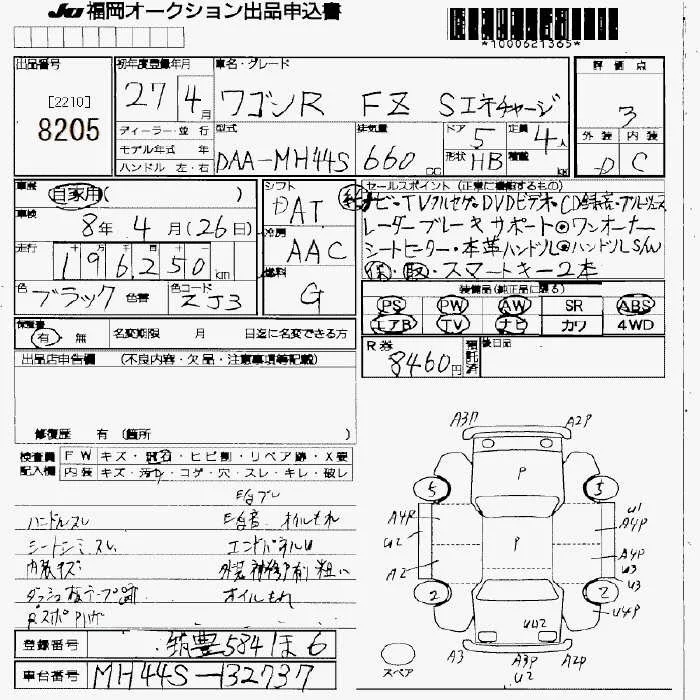 JU 福岡オークション出品申込書
*1000621365*
出品番号
[2210]
8205
初年度登録年月
27年 4月
ディーラー・並 行
モデル年式 年
ハンドル 左・右
車名・グレード
ワゴンR FZ Sエネチャージ
型式
DAA-MH44S
排気量
660 CC
ドア 5
形状 HB
定員 4人
積載
評価点
3
外装 内装
D C
車歴
自家用( )
車検
8年 4月(26日)
走行
十 万 千 百 十 一
196,250 km
色
ブラック 色替
色コード
ZJ3
シフト
DAT
冷房
AAC
燃料
G
セールスポイント(正常に機能するもの)
ナビ・TVフルセグ・DVDビデオ・CD録音・ブルートゥース
レーダーブレーキサポート◎ワンオーナー
シートヒーター・本革ハンドル◎ハンドルS/W
保・取・スマートキー2本
装備品(純正品に限る)
PS PW AW SR ABS
エアB TV ナビ カワ 4WD
保証書
有 無
名変期限 月 日迄に名変できる方
R券
8460円
預託済
後日品
出品店申告欄 (不良内容・欠品・注意事項等記載)
修復歴 有 (箇所 )
検査員
記入欄
FW キズ・飛石・ヒビ割・リペア跡・X要
内装 キズ・汚れ・コゲ・穴・スレ・キレ・破レ
ハンドルスレ
シートシミ・スレ
内装キズ
オイルもれ
エンドパネルU
オイルもれ
登録番号 筑豊 584 ほ 6
車台番号 MH44S-132737
A3P A2P
P
5 5
A4P
U2
U1
A4P
P
A2
A4P
U3
U3
2 2
U4P
UU2
A3 A3P A2P
U2
スペア